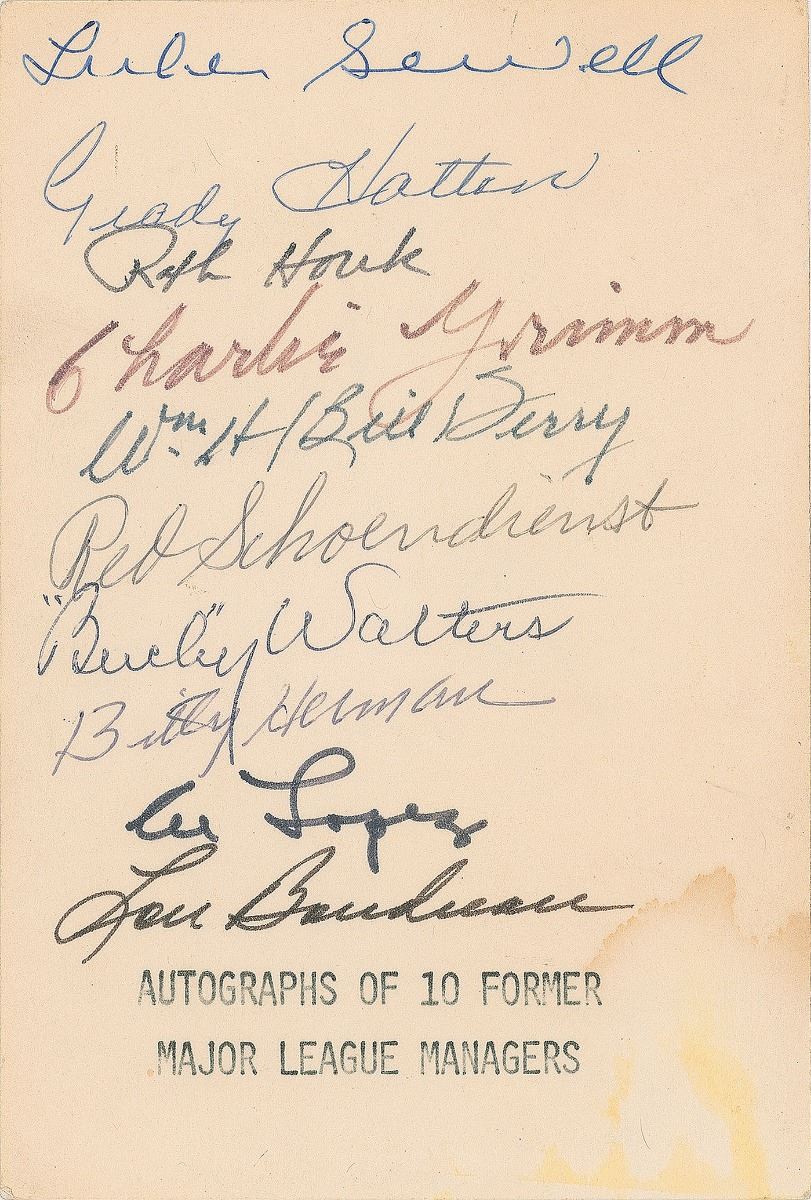 Luke Sewell
Grady Hatton
Ralph Houk
Charlie Grimm
Wm. H (Bill) Terry
Red Schoendienst
"Bucky" Walters
Billy Herman
Al Lopez
Lou Boudreau
AUTOGRAPHS OF 10 FORMER
MAJOR LEAGUE MANAGERS